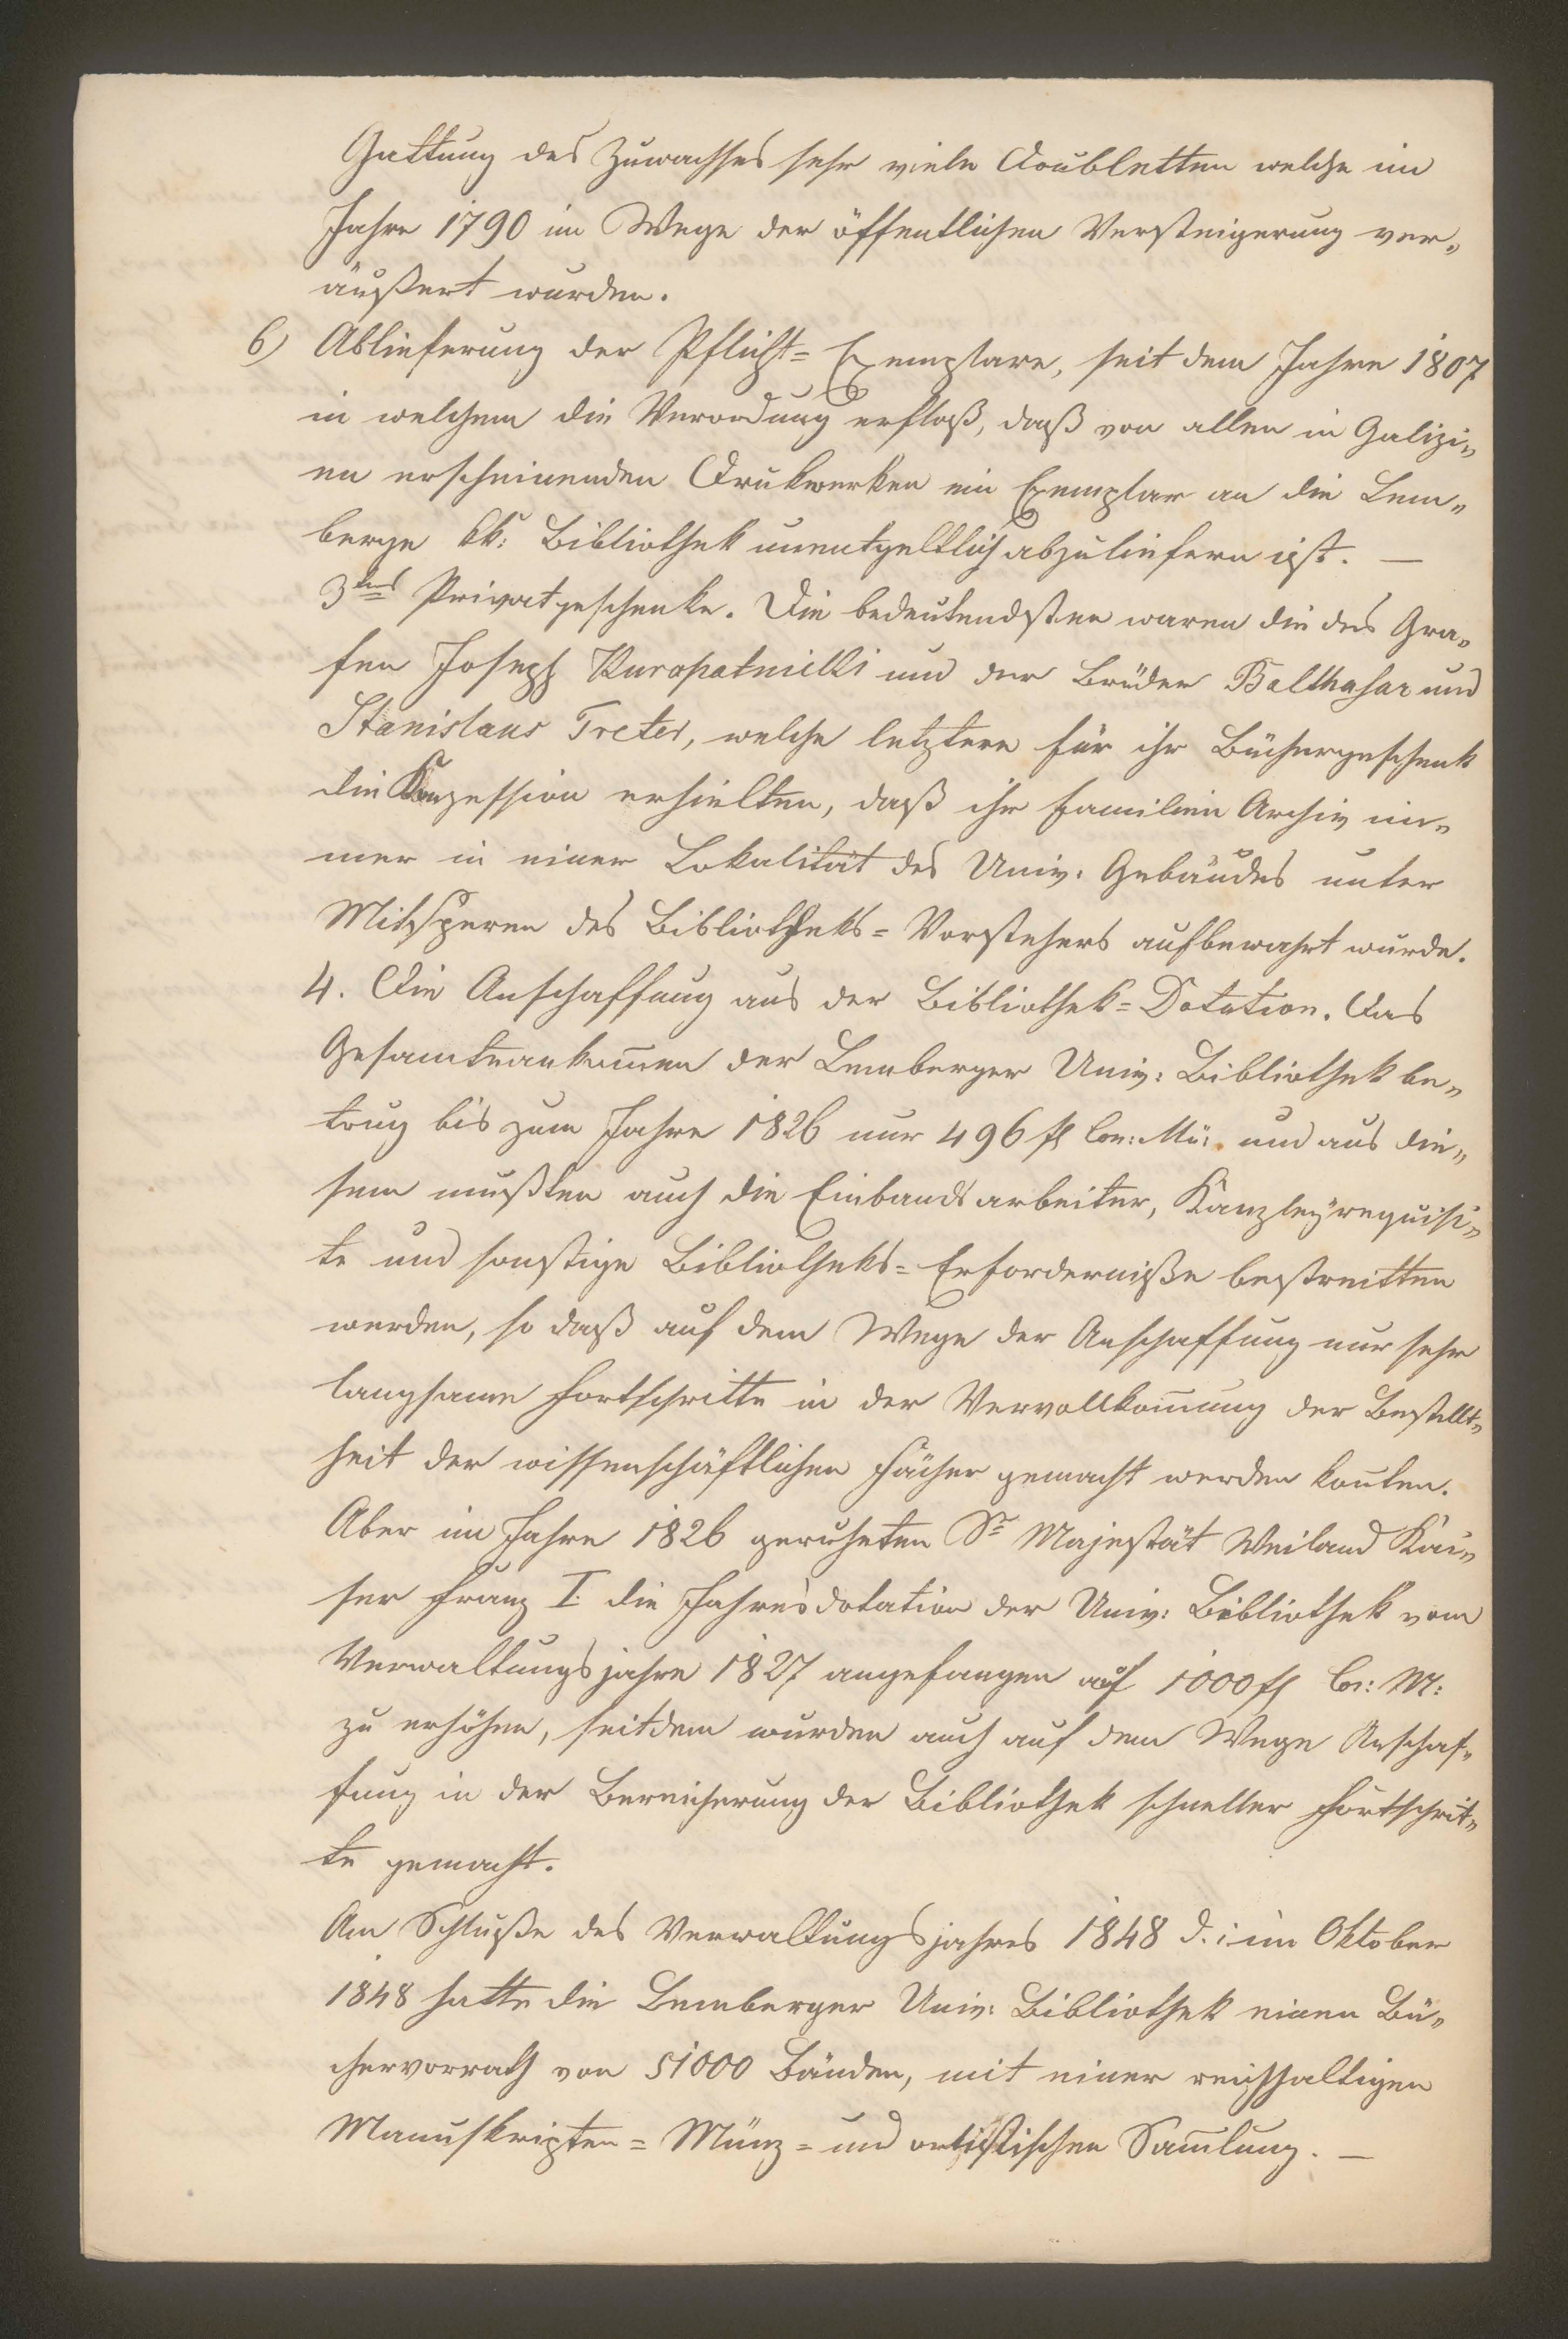 Gattung des Zuwachses sehr viele Doubletten welche im
Jahre 1790 im Wege der öffentlichen Versteigerung ver„
äußert wurden.
6) Ablieferung der Pflicht= Exemplare, seit dem Jahre 1807
in welchem die Verordung erfloß, daß von allen in Galizi„
en erscheinenden Drukwerken ein Exemplar an die Lem„
berge kk: Bibliothek unentgeltlich abzuliefern ist. —
3tens Privatgeschenke. Die bedeutendsten waren die des Gra„
fen Joseph Kuropatnicki und der Brüder Balthasar und
Stanislaus Treter, welche letztere für ihr Büchergeschenk
die Konzession erhielten, daß ihr Familien Archiv im„
mer in einer Lokalität des Univ: Gebäudes unter
Mitsperre des Bibliotheks= Vorstehers aufbewahrt wurde.
4. Die Anschaffung aus der Bibliothek= Dotation. Das
der Lemberger Univ: Bibliothek be„
trug bis zum Jahre 1826 nur 496 fl Con: Mü: und aus die„
sem mußten auch die Einbandsarbeiter, Kanzleÿrequisi„
te und sonstige Bibliotheks= Erforderniße bestreitten
werden, so daß auf dem Wege der Anschaffung nur sehr
langsame Fortschritte in der Vervollkom̅nung der Bestellt„
heit der wissenschäftlichen Fächer gemacht werden kon̅ten.
Aber im Jahre 1826 geruheten Sr Majestät Weiland Kai„
ser Franz I. die Jahresdotation der Univ: Bibliothek vom
Verwaltungsjahre 1827 angefangen auf 1000 fl Con: M:
zu erhöhen, seitdem wurden auch auf dem Wege Anschaf„
fung in der Bereicherung der Bibliothek schneller Fortschrit„
te gemacht.
Am Schluße des Verwaltungsjahres 1848 d. i: im Oktober
1848 hatte die Lemberger Univ: Bibliothek einen Bü„
chervorrath von 51000 Bänden, mit einer reichhaltigen
Manuskripten= Münz= und artistischen Sam̅lung. —